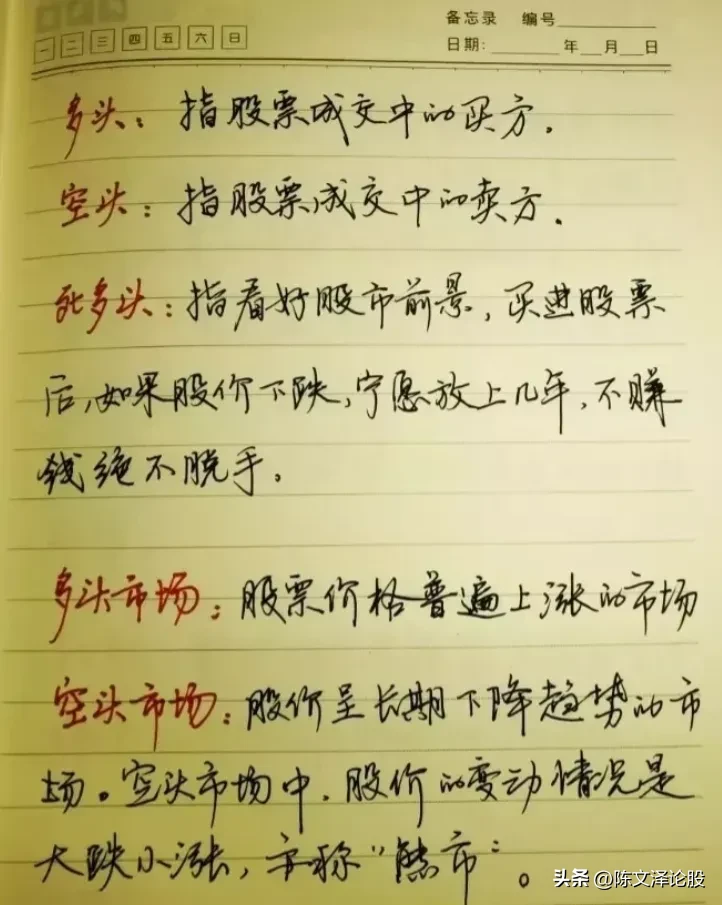 备忘录 编号
一 二 三 四 五 六 日
日期: 年 月 日
多头：指股票成交中的买方.
空头：指股票成交中的卖方.
死多头：指看好股市前景,买进股票
后,如果股价下跌,宁愿放上几年,不赚
钱绝不脱手。
多头市场：股票价格普遍上涨的市场
空头市场：股价呈长期下降趋势的市
场。空头市场中.股价的变动情况是
大跌小涨,亦称"熊市"。
头条 @陈文泽论股